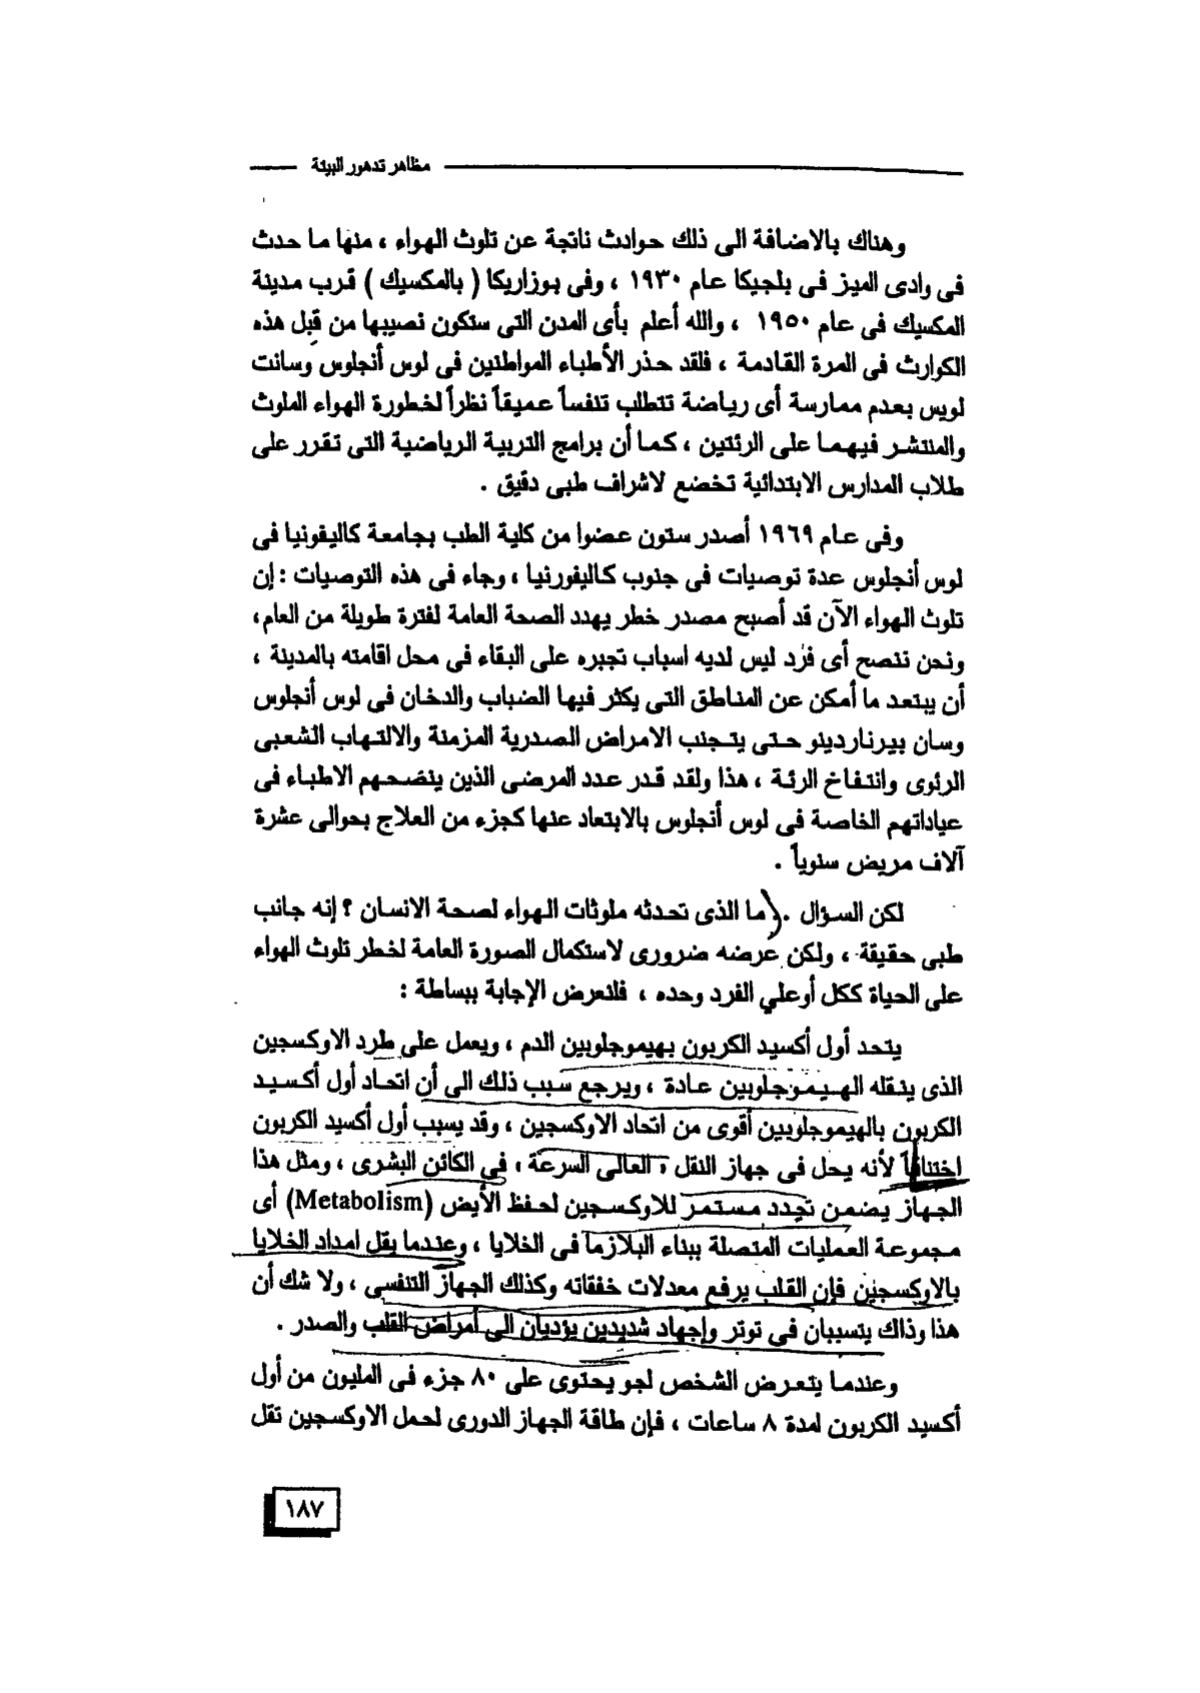 مظاهر تدهور البيئة
وهناك بالاضافة الى ذلك حوادث ناتجة عن تلوث الهواء ، منها ما حدث
فى وادى الميز فى بلجيكا عام ١٩٣٠ ، وفى بوزاريكا ( بالمكسيك ) قرب مدينة
المكسيك فى عام ١٩٥٠ ، والله أعلم بأى المدن التى ستكون نصيبها من قبل هذه
الكوارث فى المرة القادمة ، فلقد حذر الأطباء المواطنين فى لوس أنجلوس وسانت
لويس بعدم ممارسة أى رياضة تتطلب تنفساً عميقاً نظراً لخطورة الهواء الملوث
والمنتشر فيهما على الرئتين ، كما أن برامج التربية الرياضية التى تقرر على
طلاب المدارس الابتدائية تخضع لاشراف طبى دقيق .
وفى عام ١٩٦٩ أصدر ستون عضوا من كلية الطب بجامعة كاليفونيا فى
لوس أنجلوس عدة توصيات فى جنوب كاليفورنيا ، وجاء فى هذه التوصيات : إن
تلوث الهواء الآن قد أصبح مصدر خطر يهدد الصحة العامة لفترة طويلة من العام،
ونحن ننصح أى فرد ليس لديه اسباب تجبره على البقاء فى محل اقامته بالمدينة ،
أن يبتعد ما أمكن عن المناطق التى يكثر فيها الضباب والدخان فى لوس أنجلوس
وسان بيرناردينو حتى يتجنب الامراض الصدرية المزمنة والالتهاب الشعبى
الرئوى وانتفاخ الرئة ، هذا ولقد قدر عدد المرضى الذين ينصحهم الاطباء فى
عياداتهم الخاصة فى لوس أنجلوس بالابتعاد عنها كجزء من العلاج بحوالى عشرة
آلاف مريض سنوياً .
لكن السؤال . ما الذى تحدثه ملوثات الهواء لصحة الانسان ؟ إنه جانب
طبى حقيقة ، ولكن عرضه ضرورى لاستكمال الصورة العامة لخطر تلوث الهواء
على الحياة ككل أوعلي الفرد وحده ، فلنعرض الإجابة ببساطة :
يتحد أول أكسيد الكربون بهيموجلوبين الدم ، ويعمل على طرد الاوكسجين
الذى ينقله الهيموجلوبين عادة ، ويرجع سبب ذلك الى أن اتحاد أول أكسيد
الكربون بالهيموجلوبين أقوى من اتحاد الاوكسجين ، وقد يسبب أول أكسيد الكربون
اختناقاً لأنه يحل فى جهاز النقل ، العالى السرعة ، في الكائن البشرى ، ومثل هذا
الجهاز يضمن تجدد مستمر للاوكسجين لحفظ الأيض (Metabolism) أى
مجموعة العمليات المتصلة ببناء البلازما فى الخلايا ، وعندما يقل امداد الخلايا
بالاوكسجين فإن القلب يرفع معدلات خفقاته وكذلك الجهاز التنفسى ، ولا شك أن
هذا وذاك يتسببان فى توتر وإجهاد شديدين يؤديان الى أمراض القلب والصدر .
وعندما يتعرض الشخص لجو يحتوى على ٨٠ جزء فى المليون من أول
أكسيد الكربون لمدة ٨ ساعات ، فإن طاقة الجهاز الدورى لحمل الاوكسجين تقل
١٨٧